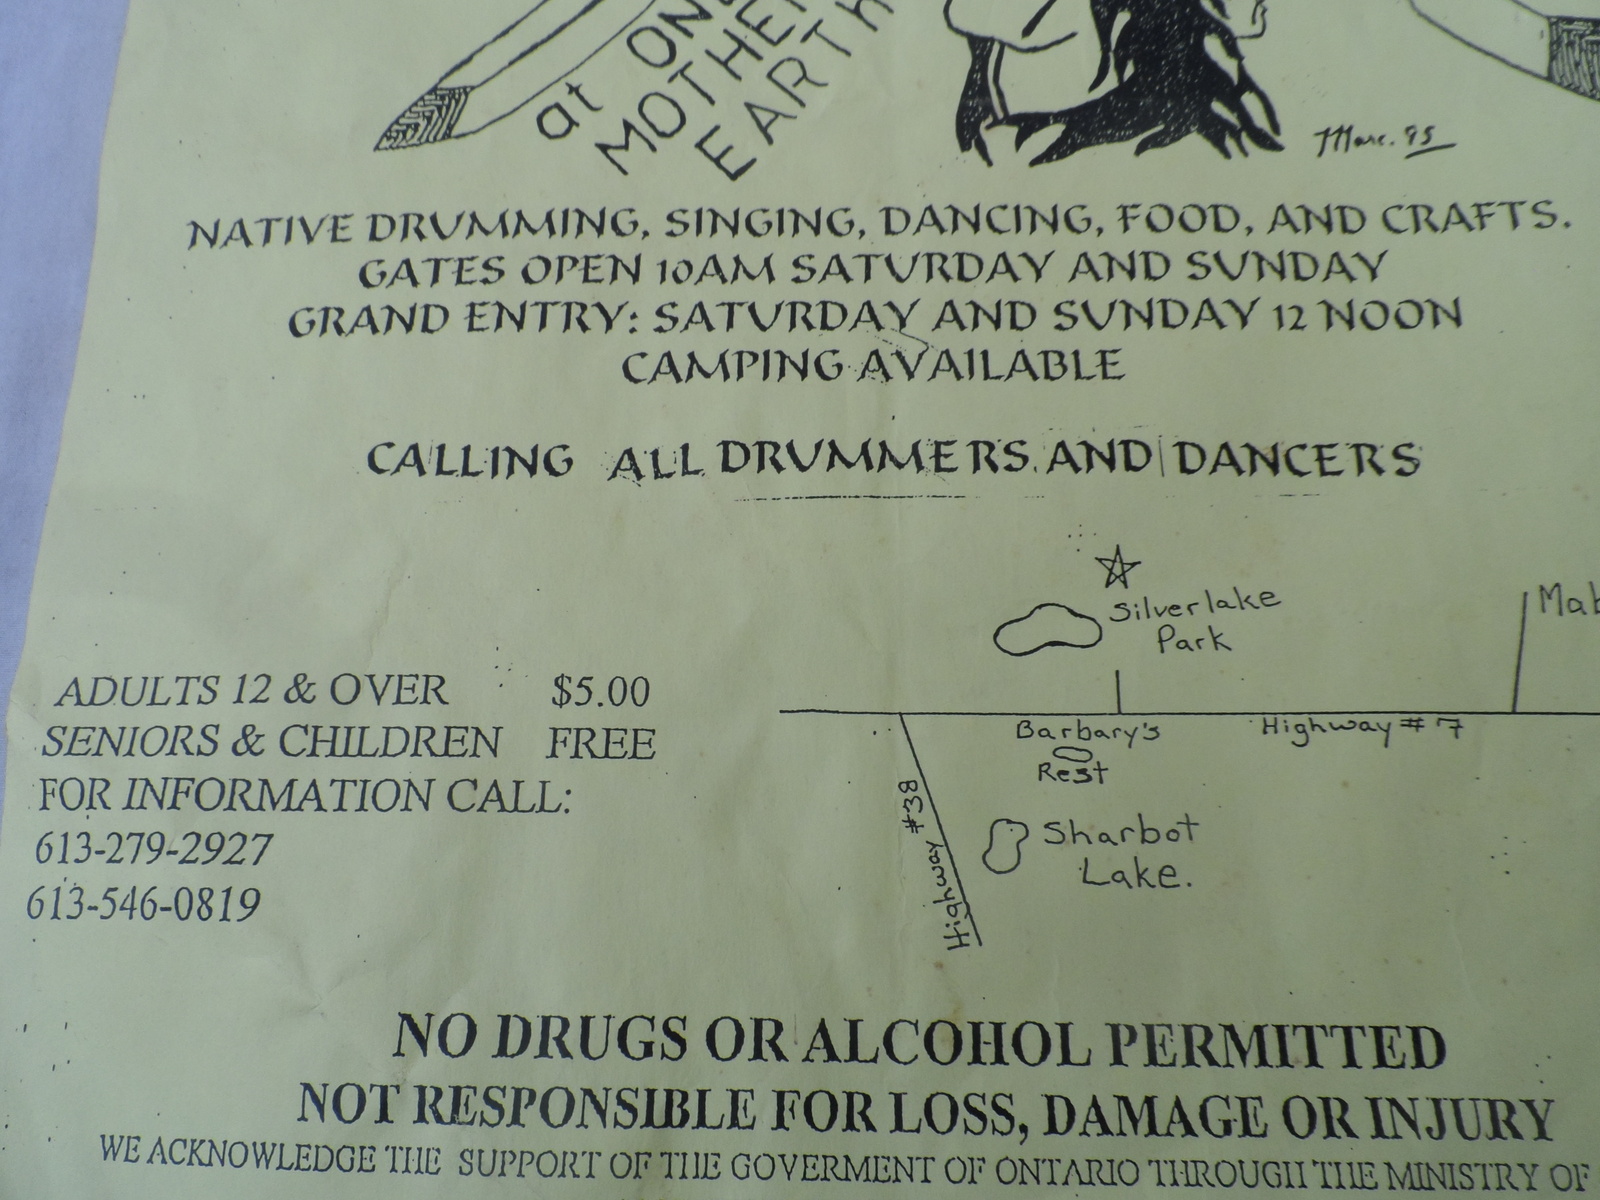 at ON
MOTHER
EARTH
Marc. 95
NATIVE DRUMMING, SINGING, DANCING, FOOD, AND CRAFTS.
GATES OPEN 10AM SATURDAY AND SUNDAY
GRAND ENTRY: SATURDAY AND SUNDAY 12 NOON
CAMPING AVAILABLE
CALLING ALL DRUMMERS AND DANCERS
Silverlake
Park
Mab
ADULTS 12 & OVER $5.00
SENIORS & CHILDREN FREE
FOR INFORMATION CALL:
613-279-2927
613-546-0819
Barbary's
Rest
Highway # 7
Highway #38
Sharbot
Lake.
NO DRUGS OR ALCOHOL PERMITTED
NOT RESPONSIBLE FOR LOSS, DAMAGE OR INJURY
WE ACKNOWLEDGE THE SUPPORT OF THE GOVERMENT OF ONTARIO THROUGH THE MINISTRY OF